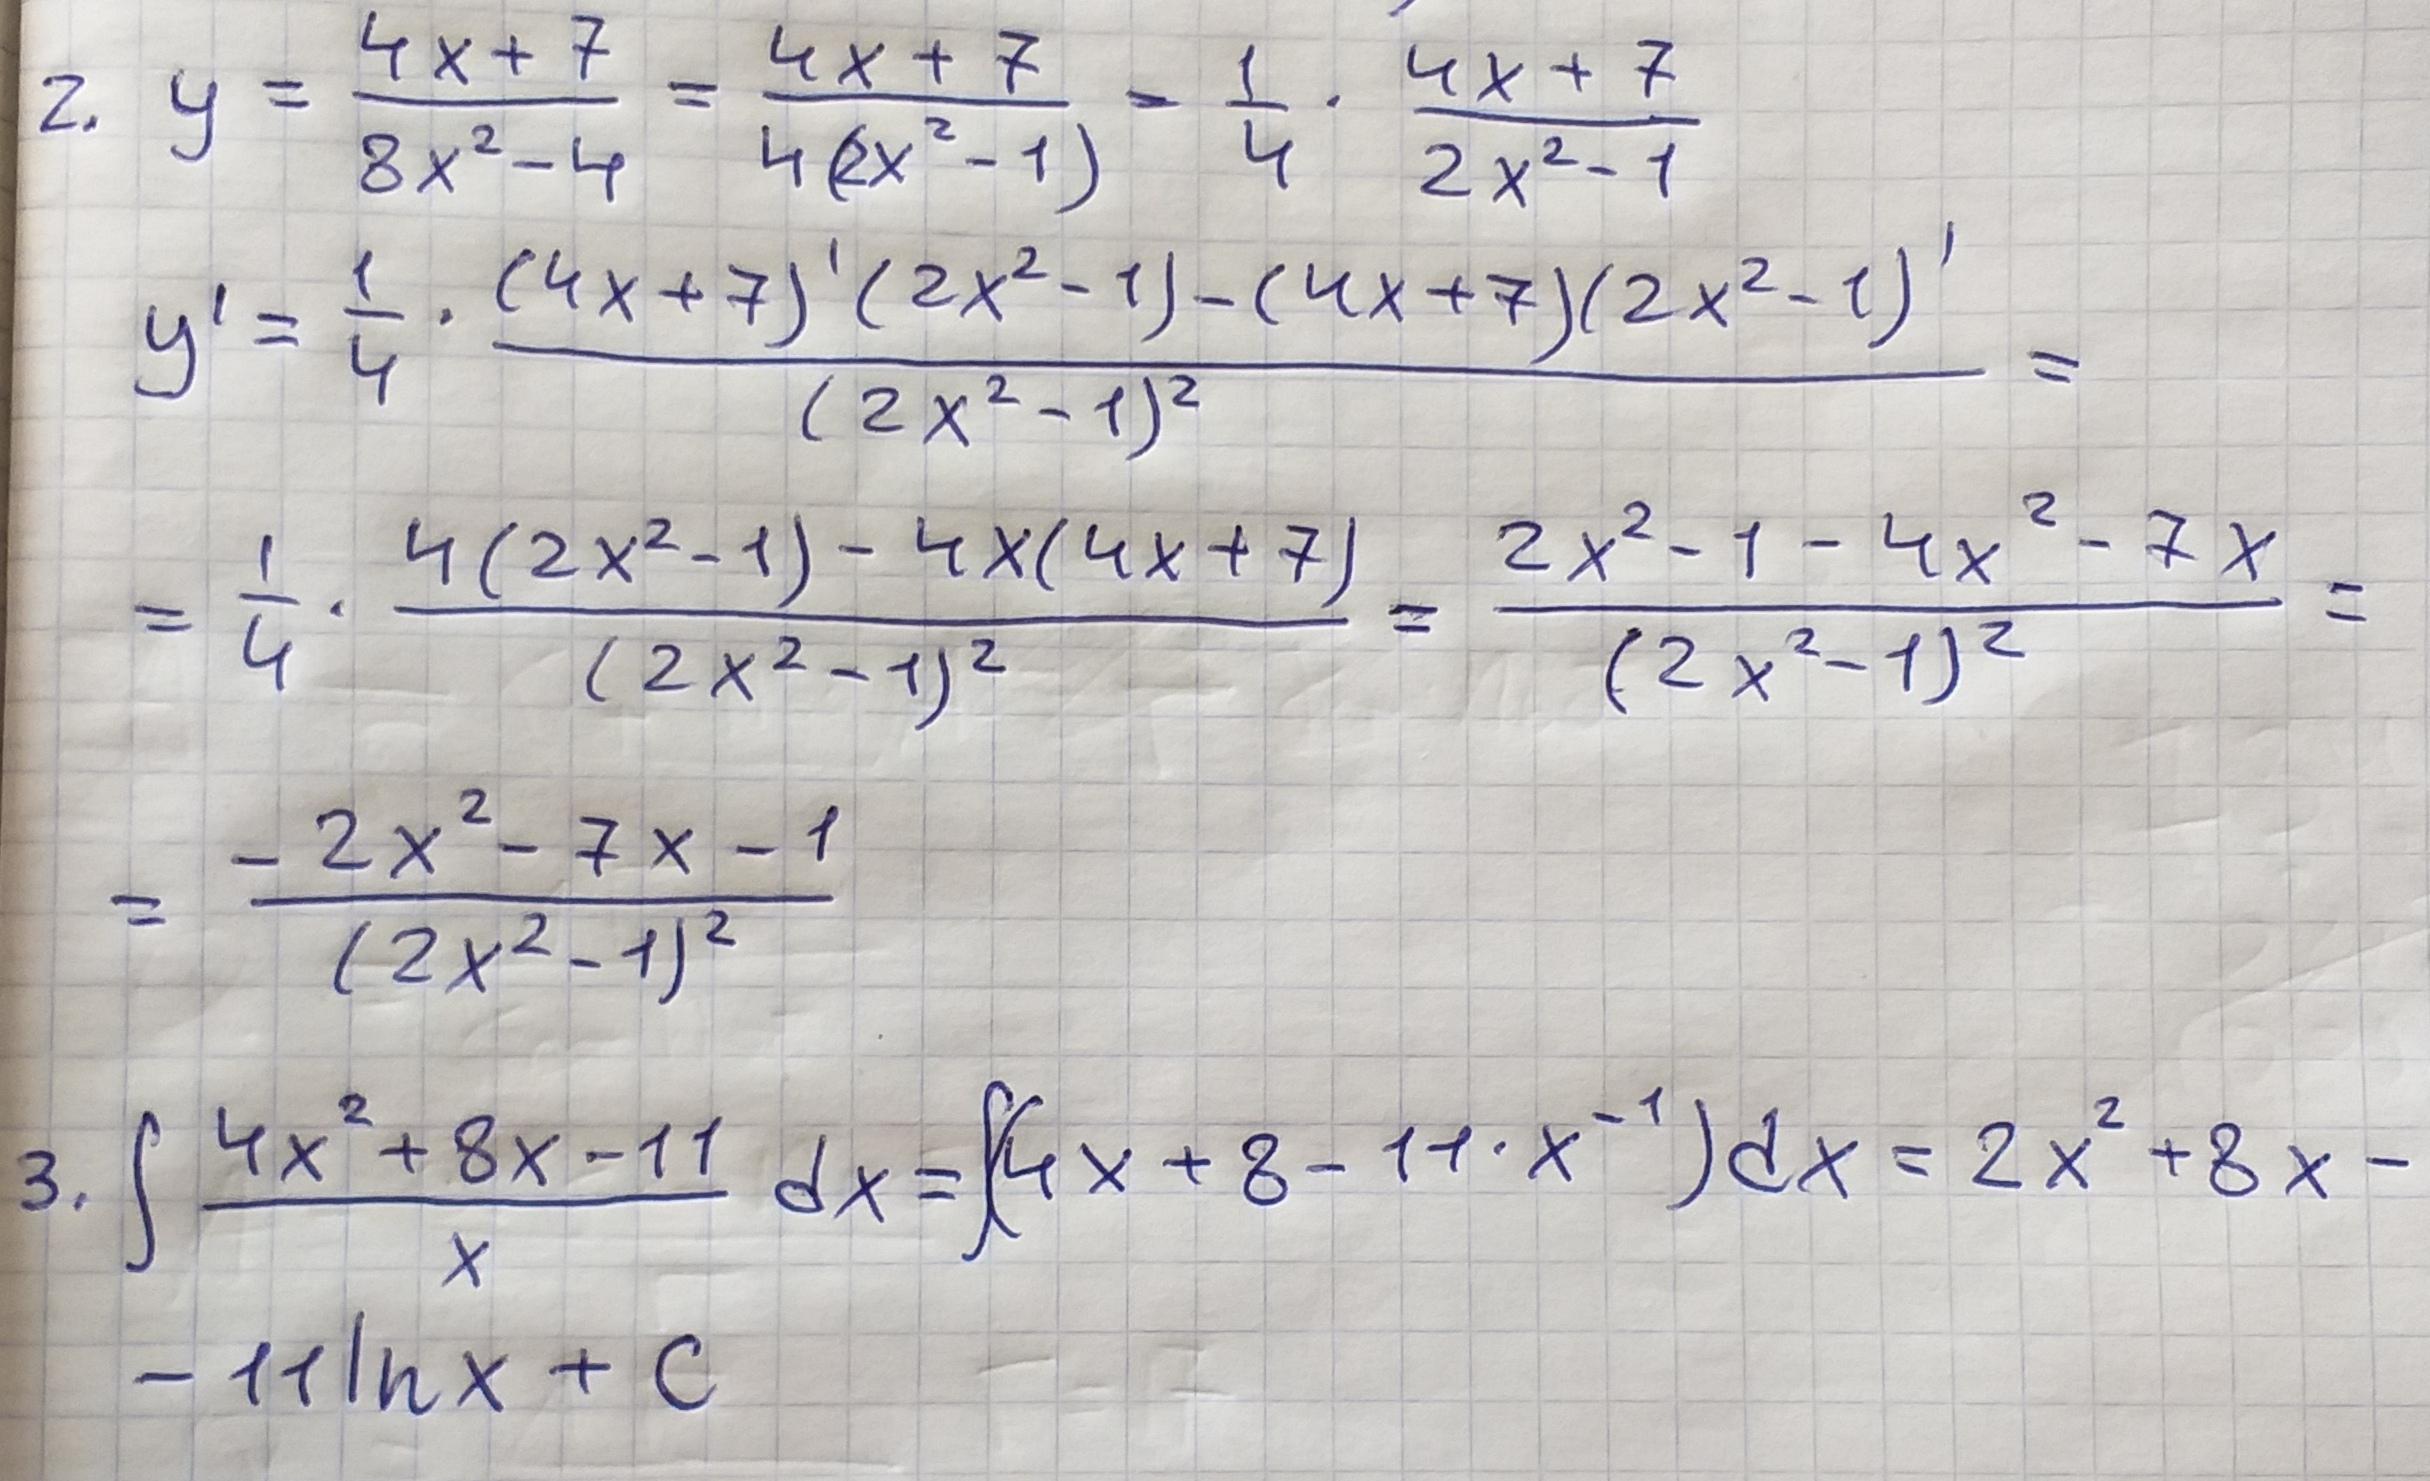 2. y = (4x+7)/(8x²-4) = (4x+7)/(4(2x²-1)) = 1/4 · (4x+7)/(2x²-1)
y' = 1/4 · ((4x+7)'(2x²-1)-(4x+7)(2x²-1)')/(2x²-1)² =
= 1/4 · (4(2x²-1)-4x(4x+7))/(2x²-1)² = (2x²-1-4x²-7x)/(2x²-1)² =
= (-2x²-7x-1)/(2x²-1)²
3. ∫ (4x²+8x-11)/x dx = ∫(4x+8-11·x⁻¹)dx = 2x²+8x-
-11lnx + C